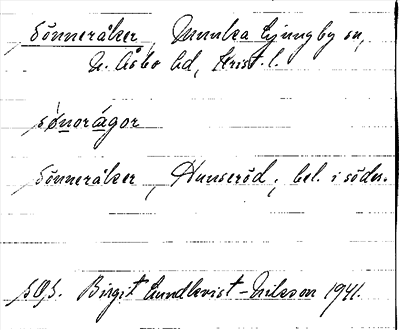 Sönneråker, Munka Ljungby sn,
N. Åsbo hd, Krist. l.
sønorágor
Sönneråker, Hunseröd, bel. i söder.
SOS. Birgit Lundkvist-Nilsson 1941.